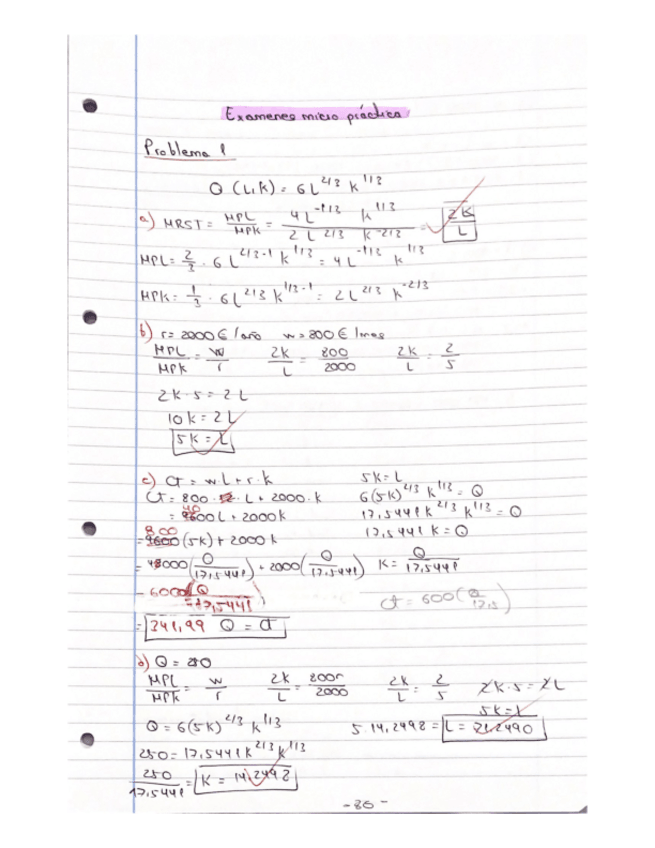 Examenes micro práctica
Problema 1
Q (L,K) = 6L^2/3 K^1/3
a) MRST = MPL/MPK = 4L^-1/3 K^1/3 / 2L^2/3 K^-2/3 = 2K/L
MPL = 2/3 · 6L^2/3-1 K^1/3 = 4L^-1/3 K^1/3
MPK = 1/3 · 6L^2/3 K^1/3-1 = 2L^2/3 K^-2/3
b) r = 2000€/año w = 800€/mes
MPL/MPK = w/r 2K/L = 800/2000 2K/L = 2/5
2K·5 = 2L
10K = 2L
5K = L
c) CT = wL + r·K 5K = L
CT = 800 · L + 2000·K 6(5K)^2/3 K^1/3 = Q
= 9600L + 2000K 17,5441 K^2/3 K^1/3 = Q
800
= 9600(5K) + 2000K 17,5441 K = Q
= 48000(Q/17,5441) + 2000(Q/17,5441) K = Q/17,5441
= 6000(Q/17,5441) CT = 600(Q/17,5)
= 341,99 Q = CT
d) Q = 250
MPL/MPK = w/r 2K/L = 800/2000 2K/L = 2/5 2K·5 = 2L
5K = L
Q = 6(5K)^2/3 K^1/3 5·14,2498 = L = 71,2490
250 = 17,5441 K^2/3 K^1/3
250/17,5441 = K = 14,2498
-86-